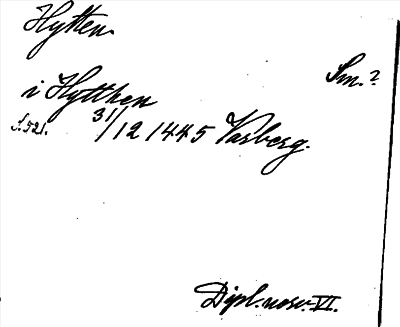 Hytten.
Sm.?
i Hytthen
S. 521. 31/12 1445 Varberg.
Dipl. norv. VI.